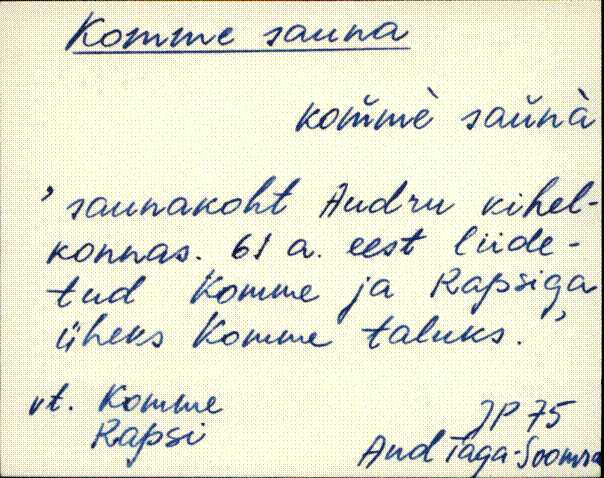 Komme sauna
kom̆mè sau̯ǹà
’saunakoht Audru kihel-
konnas. 61 a. eest liide-
tud Komme ja Rapsiga
üheks Komme taluks.’
vt. Komme
Rapsi
JP 75
Aud Taga-Soomra